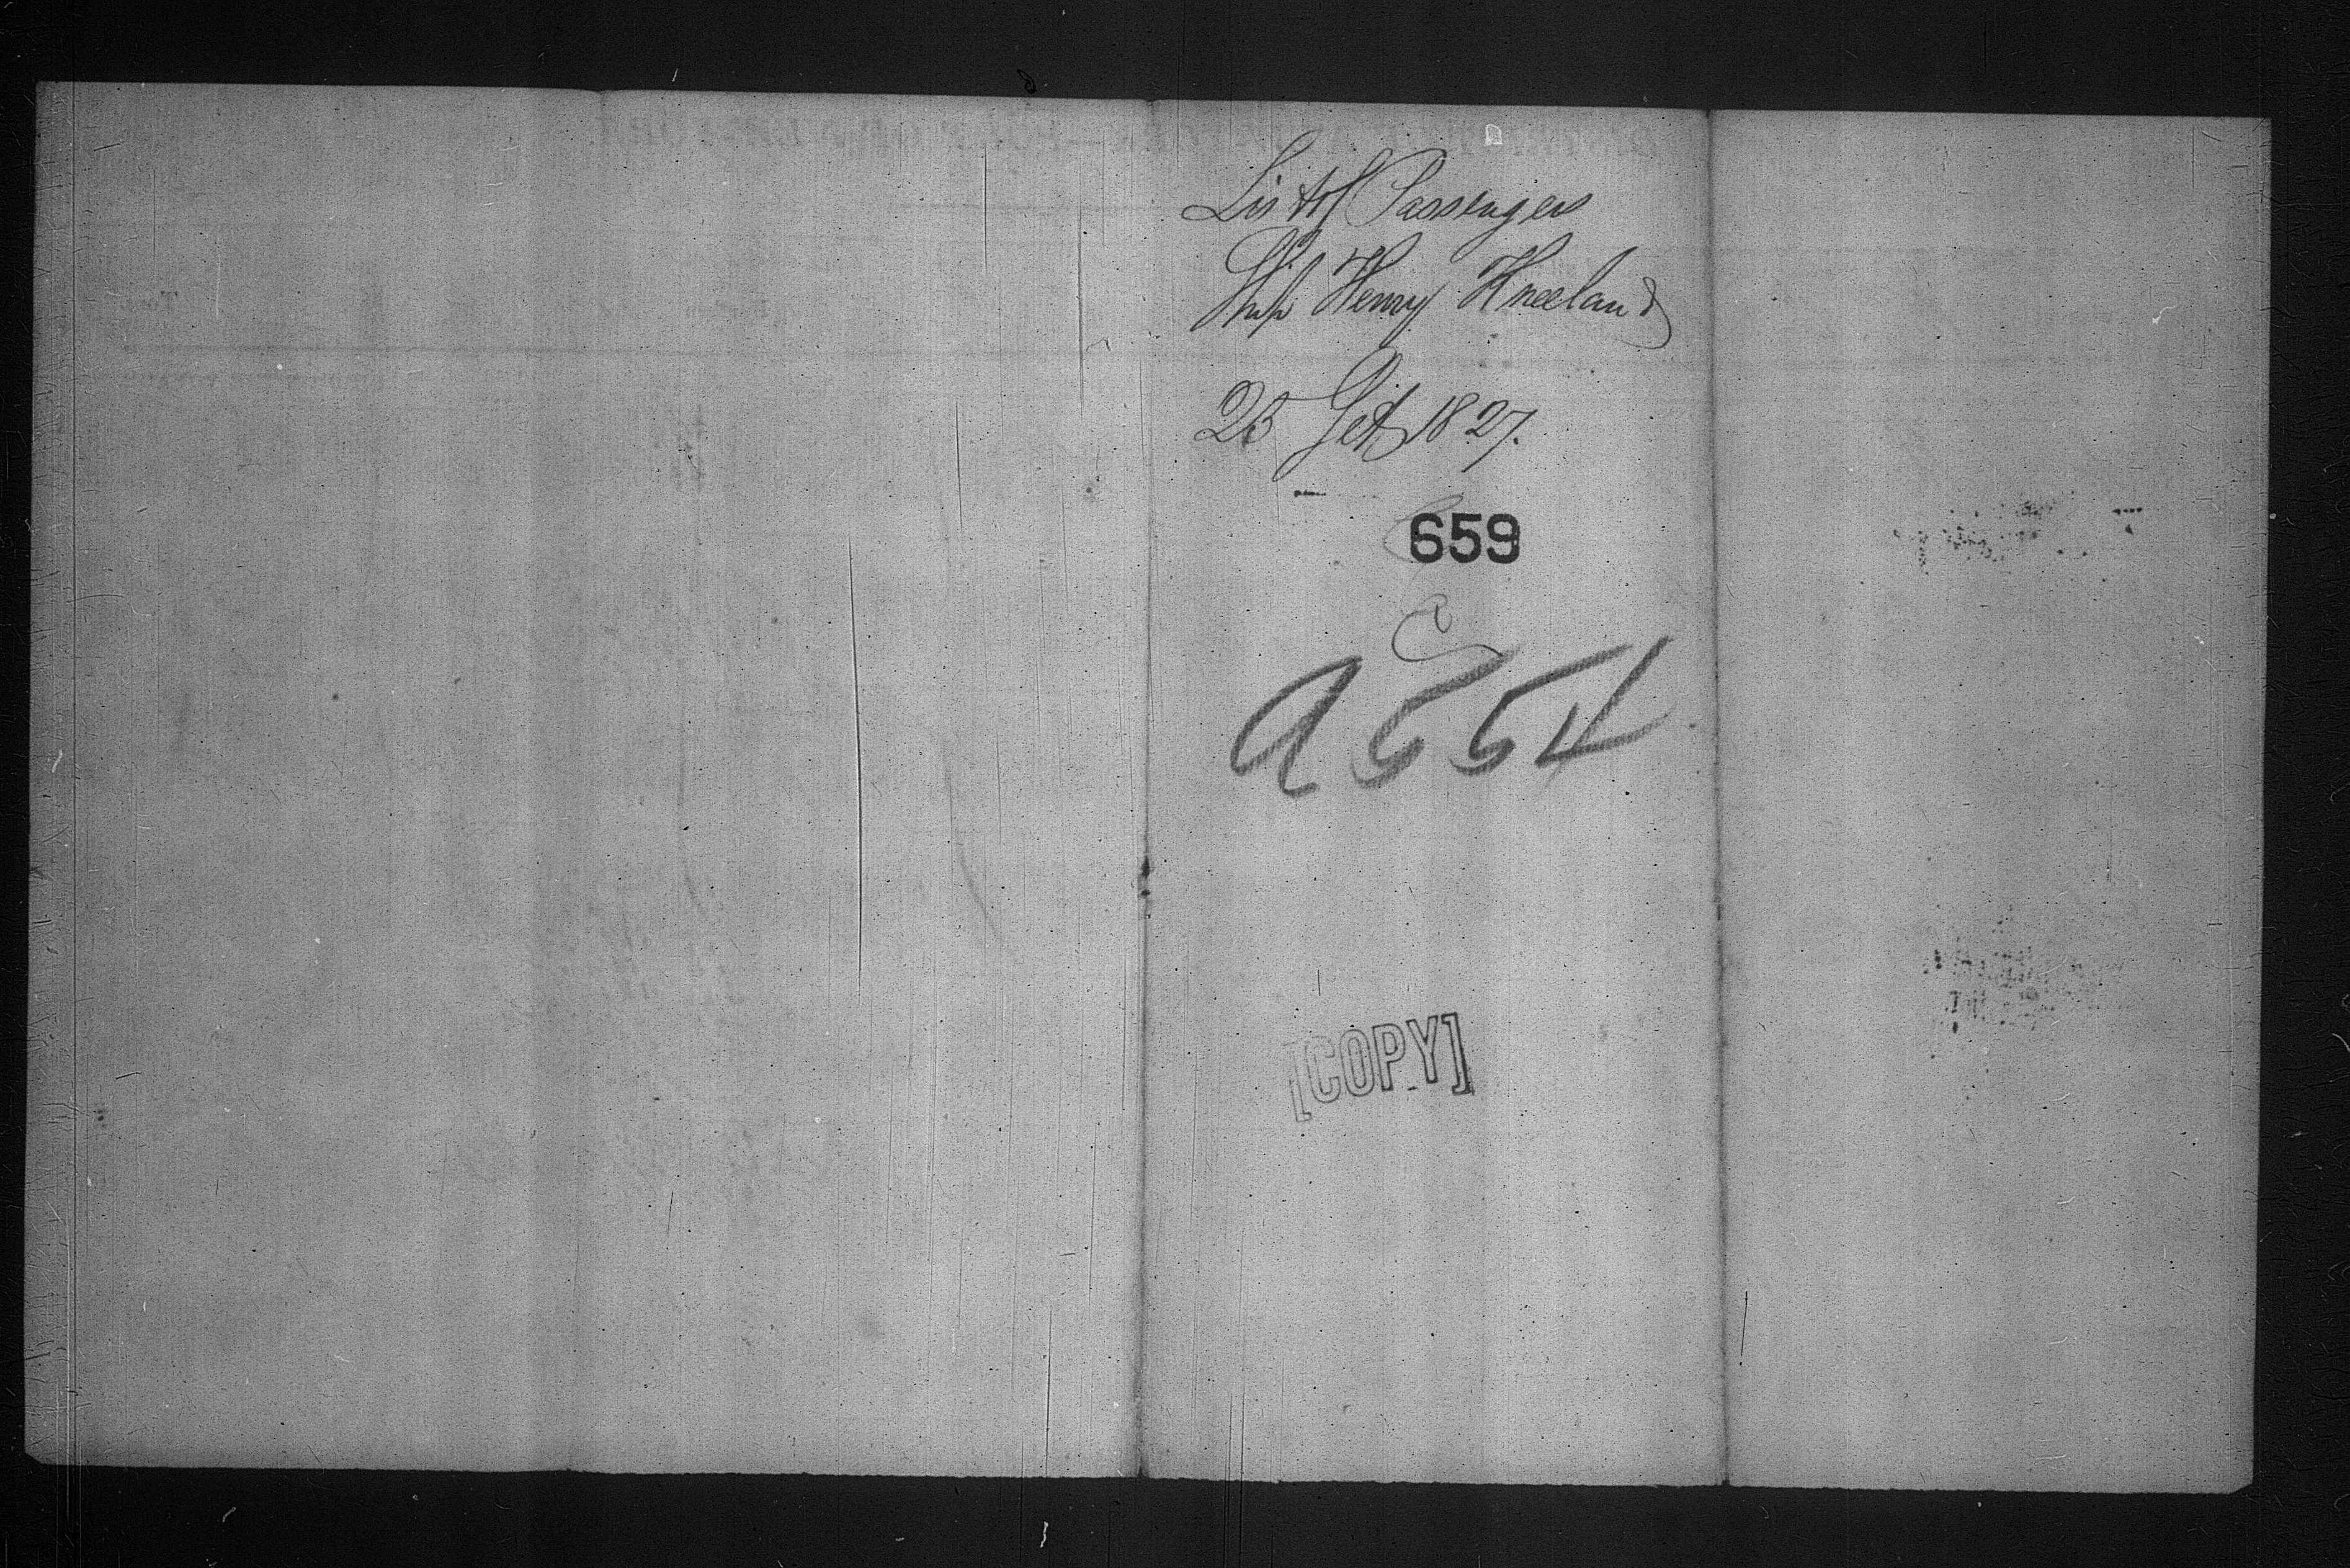 List of Passengers
Ship Henry Kneeland
25 1827.
659
A 654
[COPY]